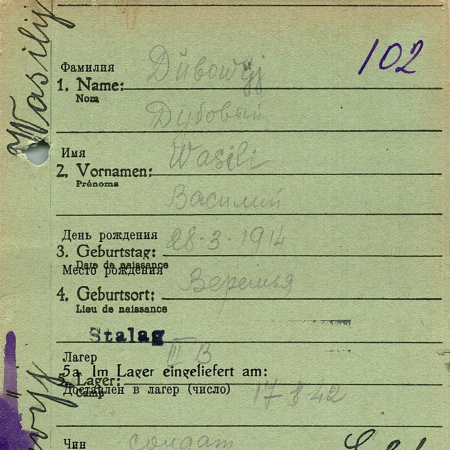 102
Фамилия
1. Name: Dubowyj
Nom
Дубовый
Имя
2. Vornamen: Wasili
Prénoms
Василий
День рождения
3. Geburtstag: 28-3-1914
Date de naissance
Место рождения
4. Geburtsort:
Lieu de naissance
Stalag
Лагер III B
5a Im Lager eingeliefert am:
5. Lager:
Доставлен в лагер (число) 17 8 42
Camp
Чин солдат
Wasilij